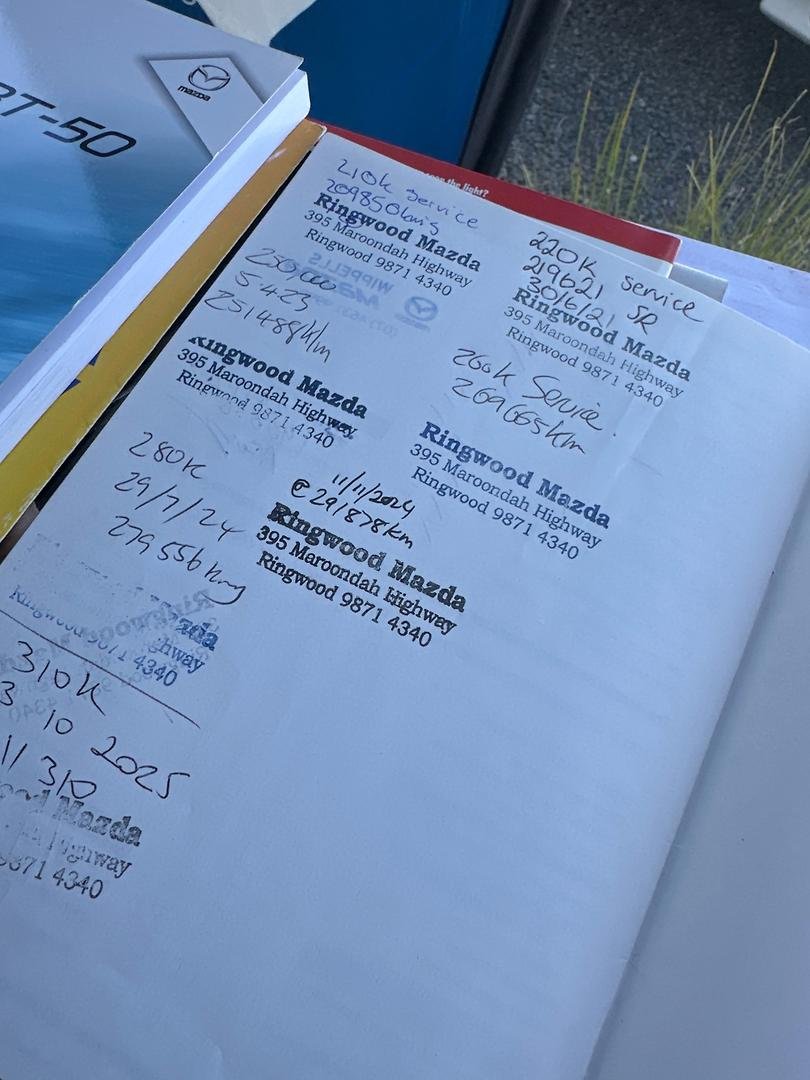 BT-50
mazda
the light?
210K Service
209850kms
Ringwood Mazda
395 Maroondah Highway
Ringwood 9871 4340
220K Service
219621
30/6/21 SR
Ringwood Mazda
395 Maroondah Highway
Ringwood 9871 4340
WIPPELLS
250,000
5.4.23
251488Km
Ringwood Mazda
395 Maroondah Highway
Ringwood 9871 4340
260K Service.
269665Km
Ringwood Mazda
395 Maroondah Highway
Ringwood 9871 4340
280K
29/7/24
279556kms
zda
ghway
Ringwood 9871 4340
11/11/2024
@291878km
Ringwood Mazda
395 Maroondah Highway
Ringwood 9871 4340
310K
3 10 2025
11 310
wood Mazda
Highway
9871 4340